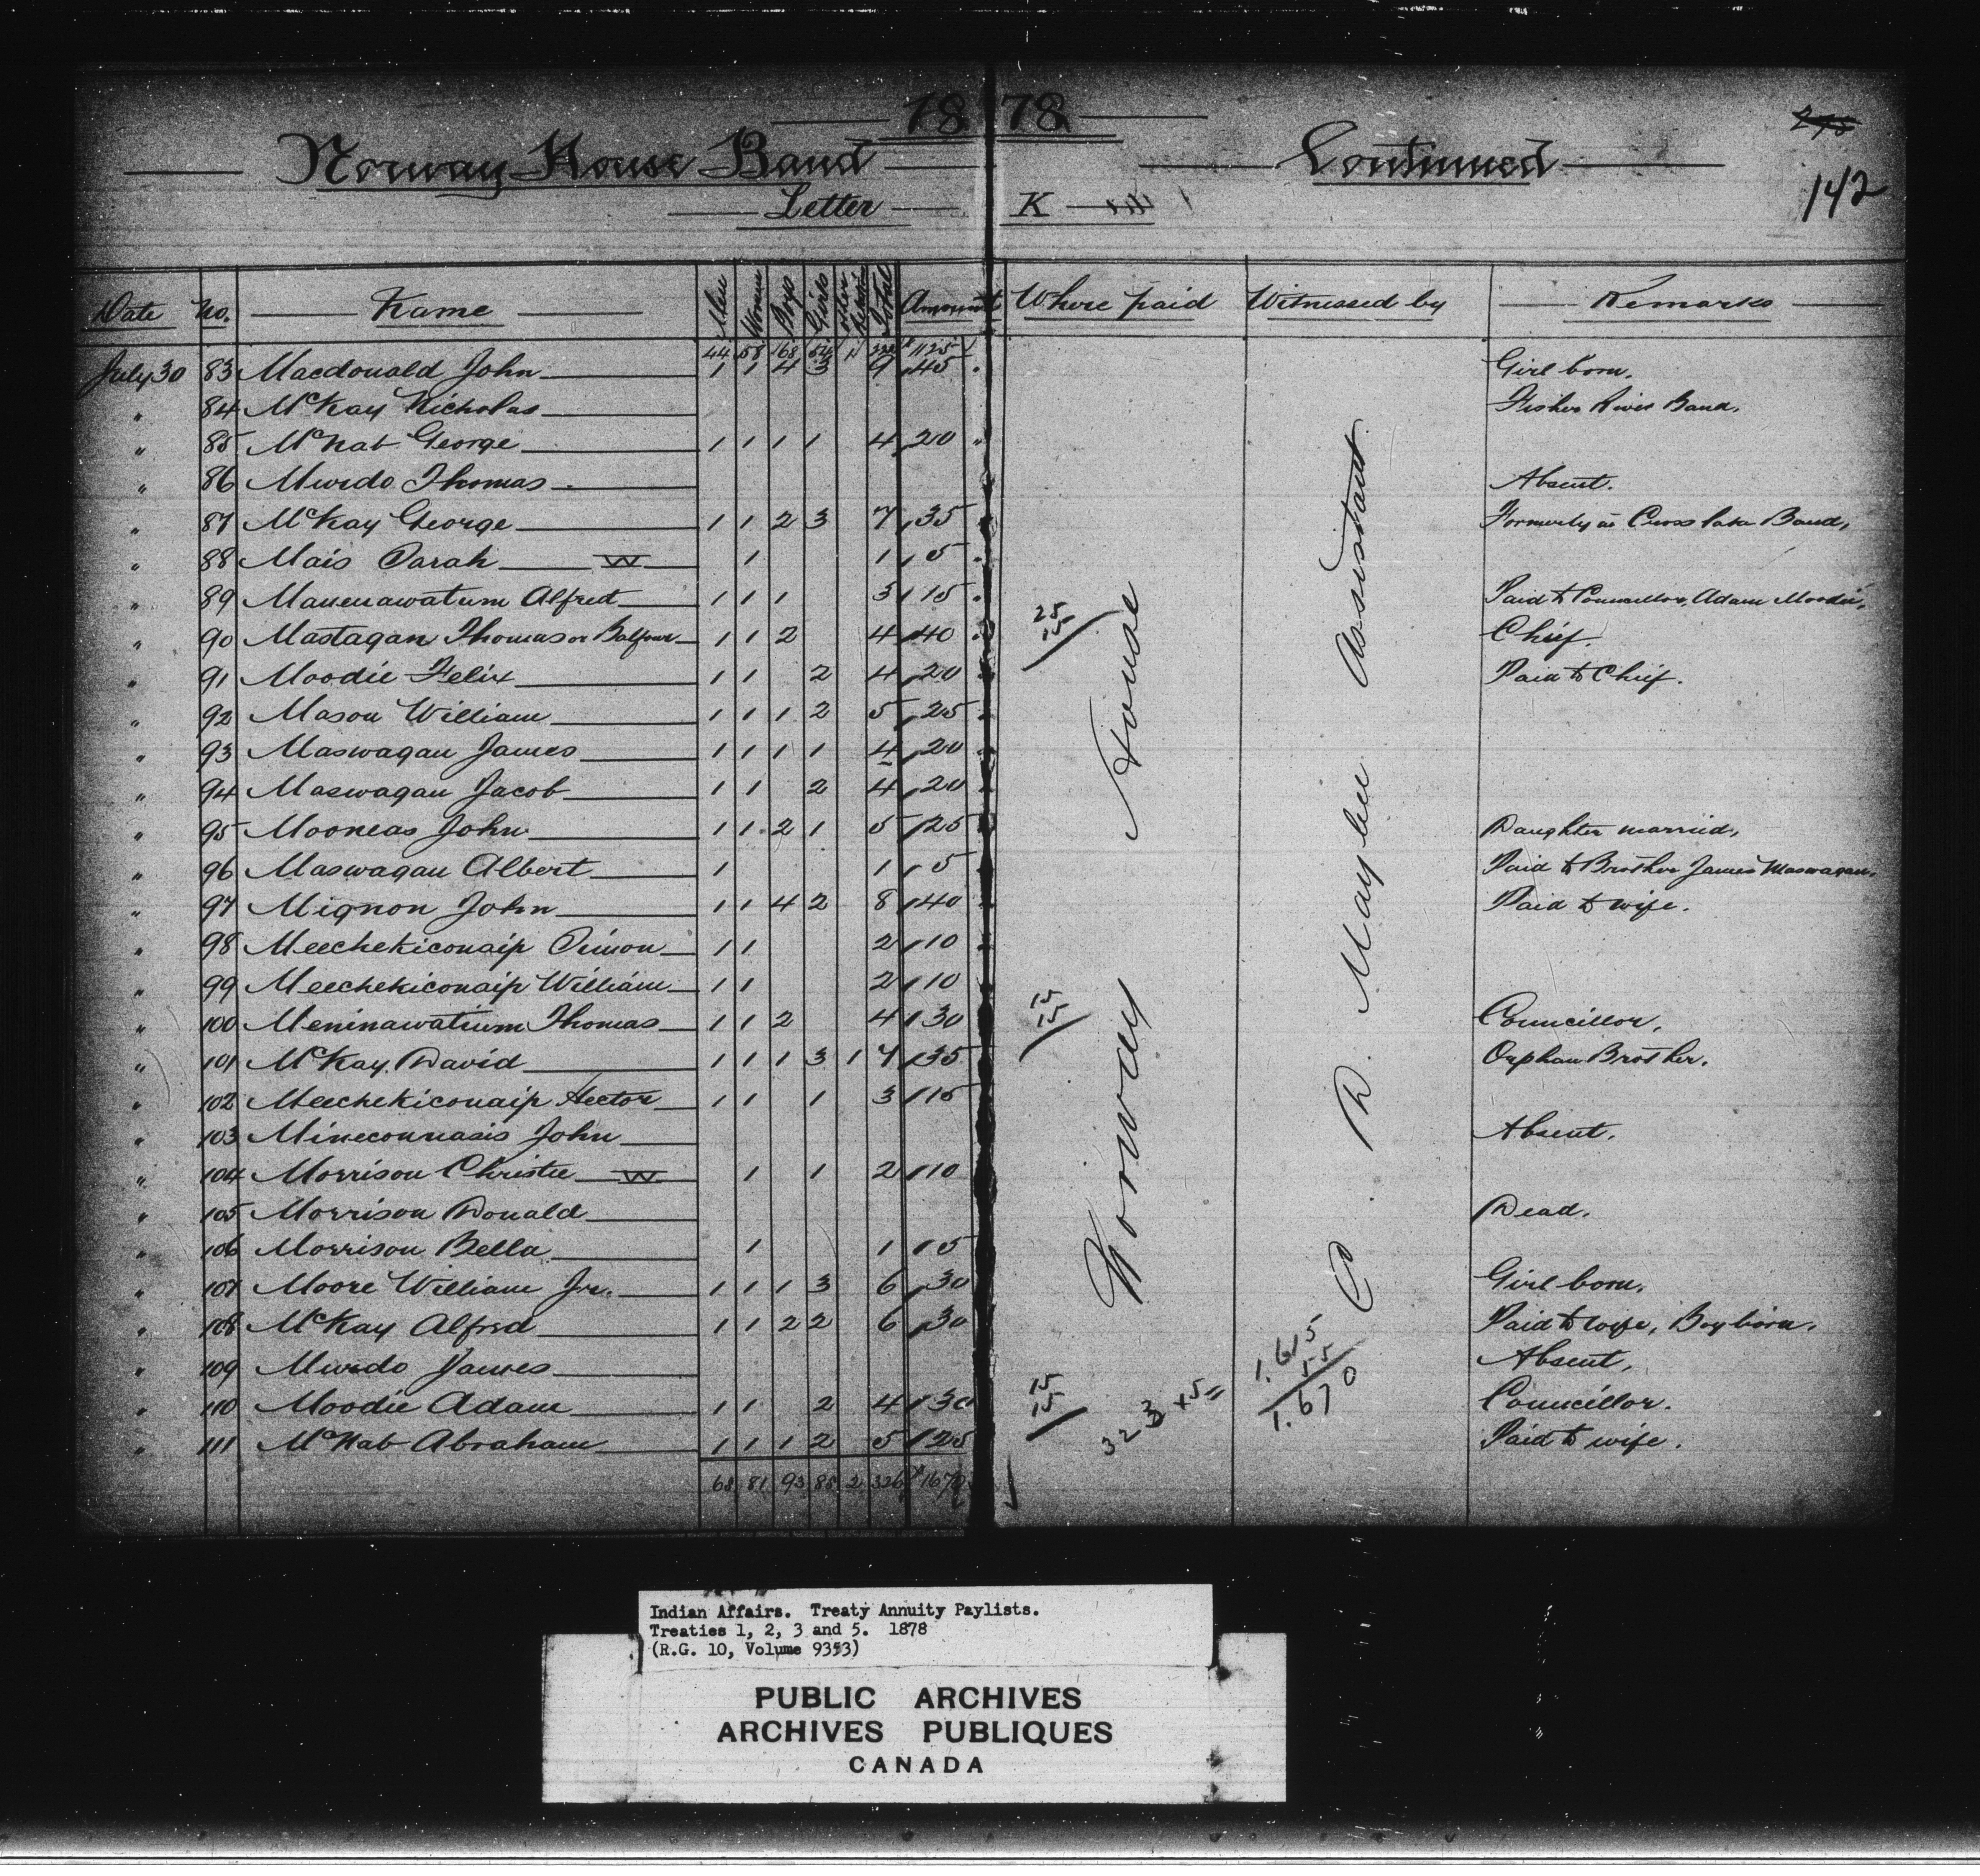 1878
Norway House Band Continued
142
Letter K
Date No. Name Men Women Boys Girls Total Amount Where paid Witnessed by Remarks
44 58 68 54 1 $1125
July 30 83 Macdonald John 1 1 4 3 9 45 Girl born.
" 84 McKay Nicholas Fisher River Band.
" 85 McNab George 1 1 1 1 4 20
" 86 Murdo Thomas Absent.
" 87 McKay George 1 1 2 3 7 35 Formerly in Cross Lake Band.
" 88 Mais Sarah W 1 1 5
" 89 Manenawatum Alfred 1 1 1 3 15 Paid to Councillor, Adam Moodie.
" 90 Mastagan Thomas or Balfour 1 1 2 4 40 25 15 Chief.
" 91 Moodie Felix 1 1 2 4 20 Paid to Chief.
" 92 Mason William 1 1 1 2 5 25
" 93 Maswagan James 1 1 1 1 4 20
" 94 Maswagan Jacob 1 1 2 4 20
" 95 Mooneas John 1 1 2 1 5 25 Daughter married.
" 96 Maswagan Albert 1 1 5 Paid to Brother James Maswagan.
" 97 Mignon John 1 1 4 2 8 40 Paid to wife.
" 98 Meechekiconaip Simon 1 1 2 10
" 99 Meechekiconaip William 1 1 2 10
" 100 Meninawatium Thomas 1 1 2 4 30 15 15 Councillor.
" 101 McKay David 1 1 1 3 1 7 35 Orphan Brother.
" 102 Meechekiconaip Hector 1 1 1 3 15
" 103 Mineconnasis John Absent.
" 104 Morrison Christie W 1 1 2 10
" 105 Morrison Donald Dead.
" 106 Morrison Bella 1 1 5
" 107 Moore William Jr. 1 1 1 3 6 30 Girl born.
" 108 McKay Alfred 1 1 2 2 6 30 Paid to wife, Boy born.
" 109 Murdo James Absent.
" 110 Moodie Adam 1 1 2 4 30 15 15 Councillor.
" 111 McNab Abraham 1 1 1 2 5 25 Paid to wife.
68 81 93 88 2 326 $1670
Norway House
C. D. Maybee Assistant
323 x 5 =
1.615
55
1.670
Indian Affairs. Treaty Annuity Paylists.
Treaties 1, 2, 3 and 5. 1878
(R.G. 10, Volume 9353)
PUBLIC ARCHIVES
ARCHIVES PUBLIQUES
CANADA